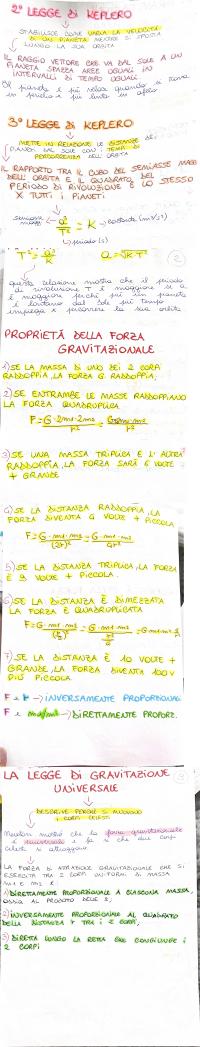 2° LEGGE di KEPLERO
STABILISCE COME VARIA LA VELOCITÀ
DI UN PIANETA MENTRE SI SPOSTA
LUNGO LA SUA ORBITA
IL RAGGIO VETTORE CHE VA DAL SOLE A UN
PIANETA SPAZZA AREE UGUALI IN
INTERVALLI DI TEMPO UGUALI
Il pianeta è più veloce quando si trova
in perielio e più lento in afelio
3° LEGGE di KEPLERO
METTE IN RELAZIONE LE DISTANZE DEI
PIANETI DAL SOLE CON I TEMPI DI
PERCORRENZA DELL'ORBITA
IL RAPPORTO TRA IL CUBO DEL SEMIASSE MAGG
DELL'ORBITA E IL QUADRATO DEL
PERIODO DI RIVOLUZIONE È LO STESSO
X TUTTI I PIANETI
semiasse
magg a³/T² = K → costante (m³/s²)
periodo (s)
2
questa relazione mostra che il periodo
di rivoluzione T è maggiore se a
è maggiore perché più un pianeta
è lontano dal Sole più tempo
impiega x percorrere la sua orbita
PROPRIETÀ DELLA FORZA
GRAVITAZIONALE
1) SE LA MASSA DI UNO DEI 2 CORPI
RADDOPPIA, LA FORZA G RADDOPPIA
2) SE ENTRAMBE LE MASSE RADDOPPIANO
LA FORZA QUADRUPLICA
F = G · 2m1 · 2m2 / r²
3) SE UNA MASSA TRIPLICA E L'ALTRA
RADDOPPIA, LA FORZA SARÀ 6 VOLTE
+ GRANDE
4) SE LA DISTANZA RADDOPPIA, LA
FORZA DIVENTA 4 VOLTE + PICCOLA
F = G · m1 · m2 / (2r)² = G · m1 · m2 / 4r²
5) SE LA DISTANZA TRIPLICA, LA FORZA
È 9 VOLTE + PICCOLA.
6) SE LA DISTANZA È DIMEZZATA
LA FORZA È QUADRUPLICATA
7) SE LA DISTANZA È 10 VOLTE +
GRANDE, LA FORZA DIVENTA 100 V
PIÙ PICCOLA
F e r → INVERSAMENTE PROPORZIONALI
F e m1/m2 → DIRETTAMENTE PROPORZ.
LA LEGGE DI GRAVITAZIONE
UNIVERSALE
DESCRIVE PERCHÉ SI MUOVONO
I CORPI CELESTI
Newton mostrò che la forza gravitazionale
è universale e fa sì che due corpi
celesti si attraggano
LA FORZA DI ATTRAZIONE GRAVITAZIONALE CHE SI
ESERCITA TRA 2 CORPI DI MASSA
m1 e m2 È:
1) DIRETTAMENTE PROPORZIONALE A CIASCUNA MASSA,
OSSIA AL PRODOTTO DELLE 2,
2) INVERSAMENTE PROPORZIONALE AL QUADRATO
DELLA DISTANZA r TRA I 2 CORPI,
3) DIRETTA LUNGO LA RETTA CHE CONGIUNGE I
2 CORPI